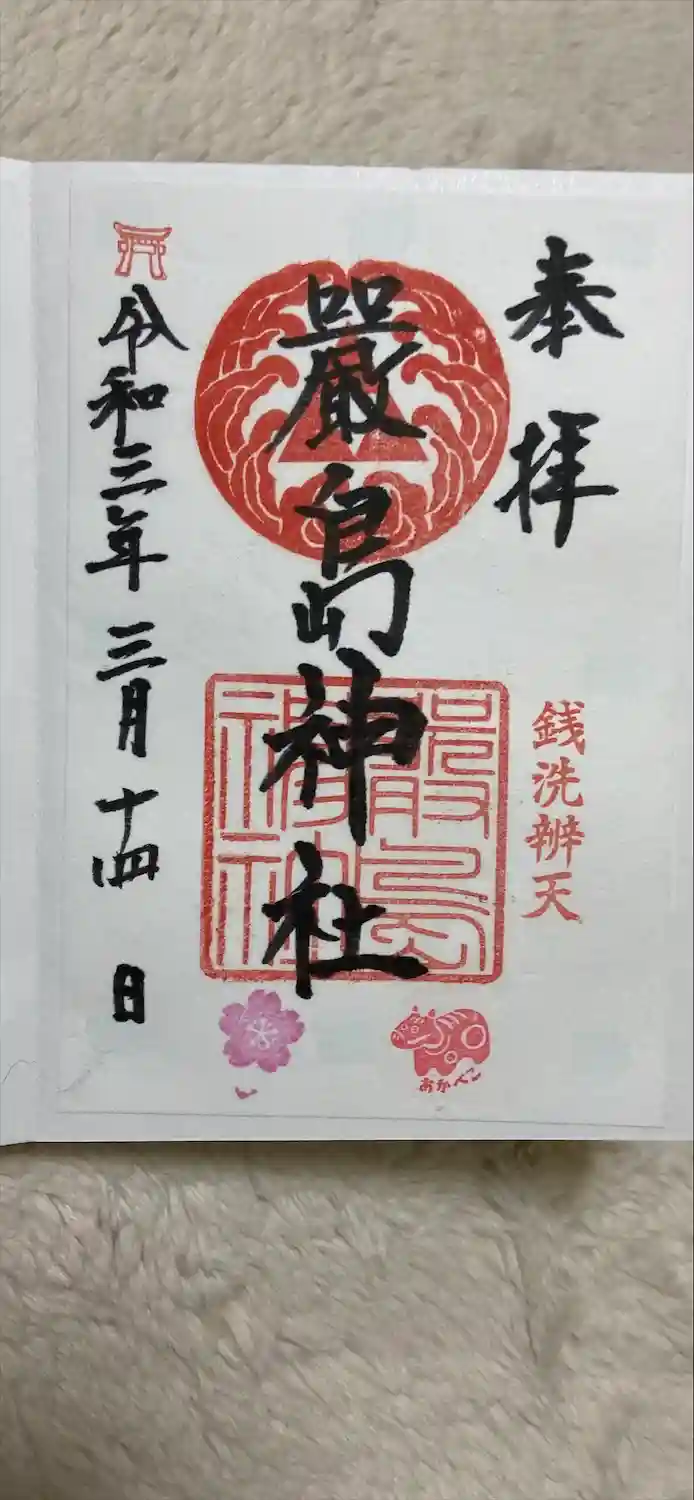 奉拝
銭洗辨天
嚴島神社
嚴島
神社
令和三年三月十四日
あかべこ